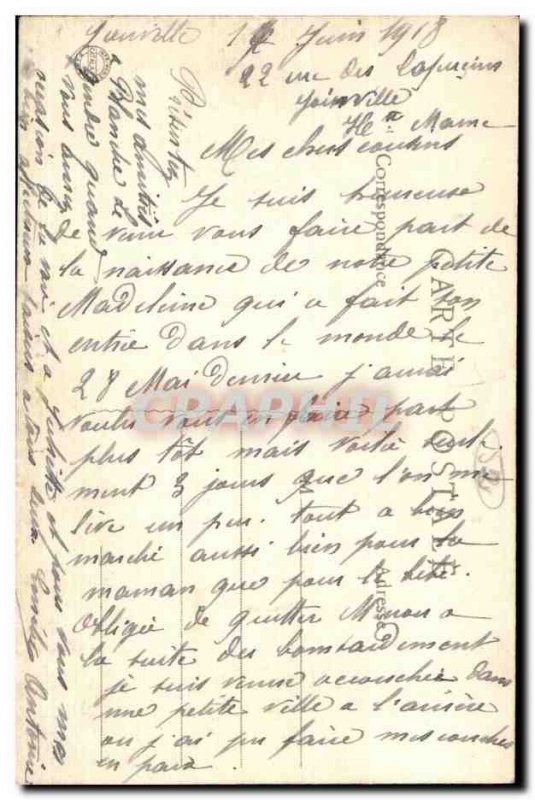 Joinville 12 Juin 1918
22 rue des Capucins
Joinville
Hte Marne
Mes chers cousins
Je suis heureuse
de venir vous faire part de
la naissance de notre petite
Madeleine qui a fait son
entrée dans le monde le
28 Mai dernier j'aurai
voulu vous en faire part
plus tôt mais voilà seule-
ment 3 jours que l'on me
lève un peu. tout a bien
marché aussi bien pour la
maman que pour le bébé.
Obligée de quitter a
la suite des bombardement
je suis venue accoucher dans
une petite ville a l'arrière
ou j'ai pu faire mes couches
en paix.
Présentez
mes amitiés
a Blanche Le
quand
vous aurez
occasion de la voir et a Juliette et pour vous mes
bien affectueux baisers a tous deux Antonie
CARTE POSTALE
Correspondance
Adresse
CRAPHIL